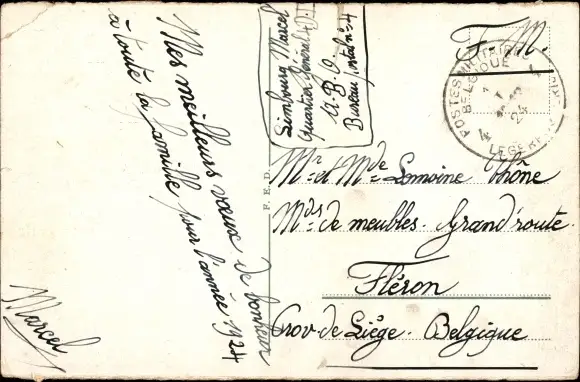 Mes meilleurs vœux de bonheur
à toute la famille pour l'année 1924
Marcel
Simbourg Marcel
Quartier Général 4 D.I.
A.B.O.
Bureau postal n° 4
F. M.
POSTES MILITAIRES
BELGIQUE
4
24
F. E. D.
Mr et Mde Lemoine Thône
Mds de meubles. Grand'route.
Fléron
Prov de Liège. Belgique